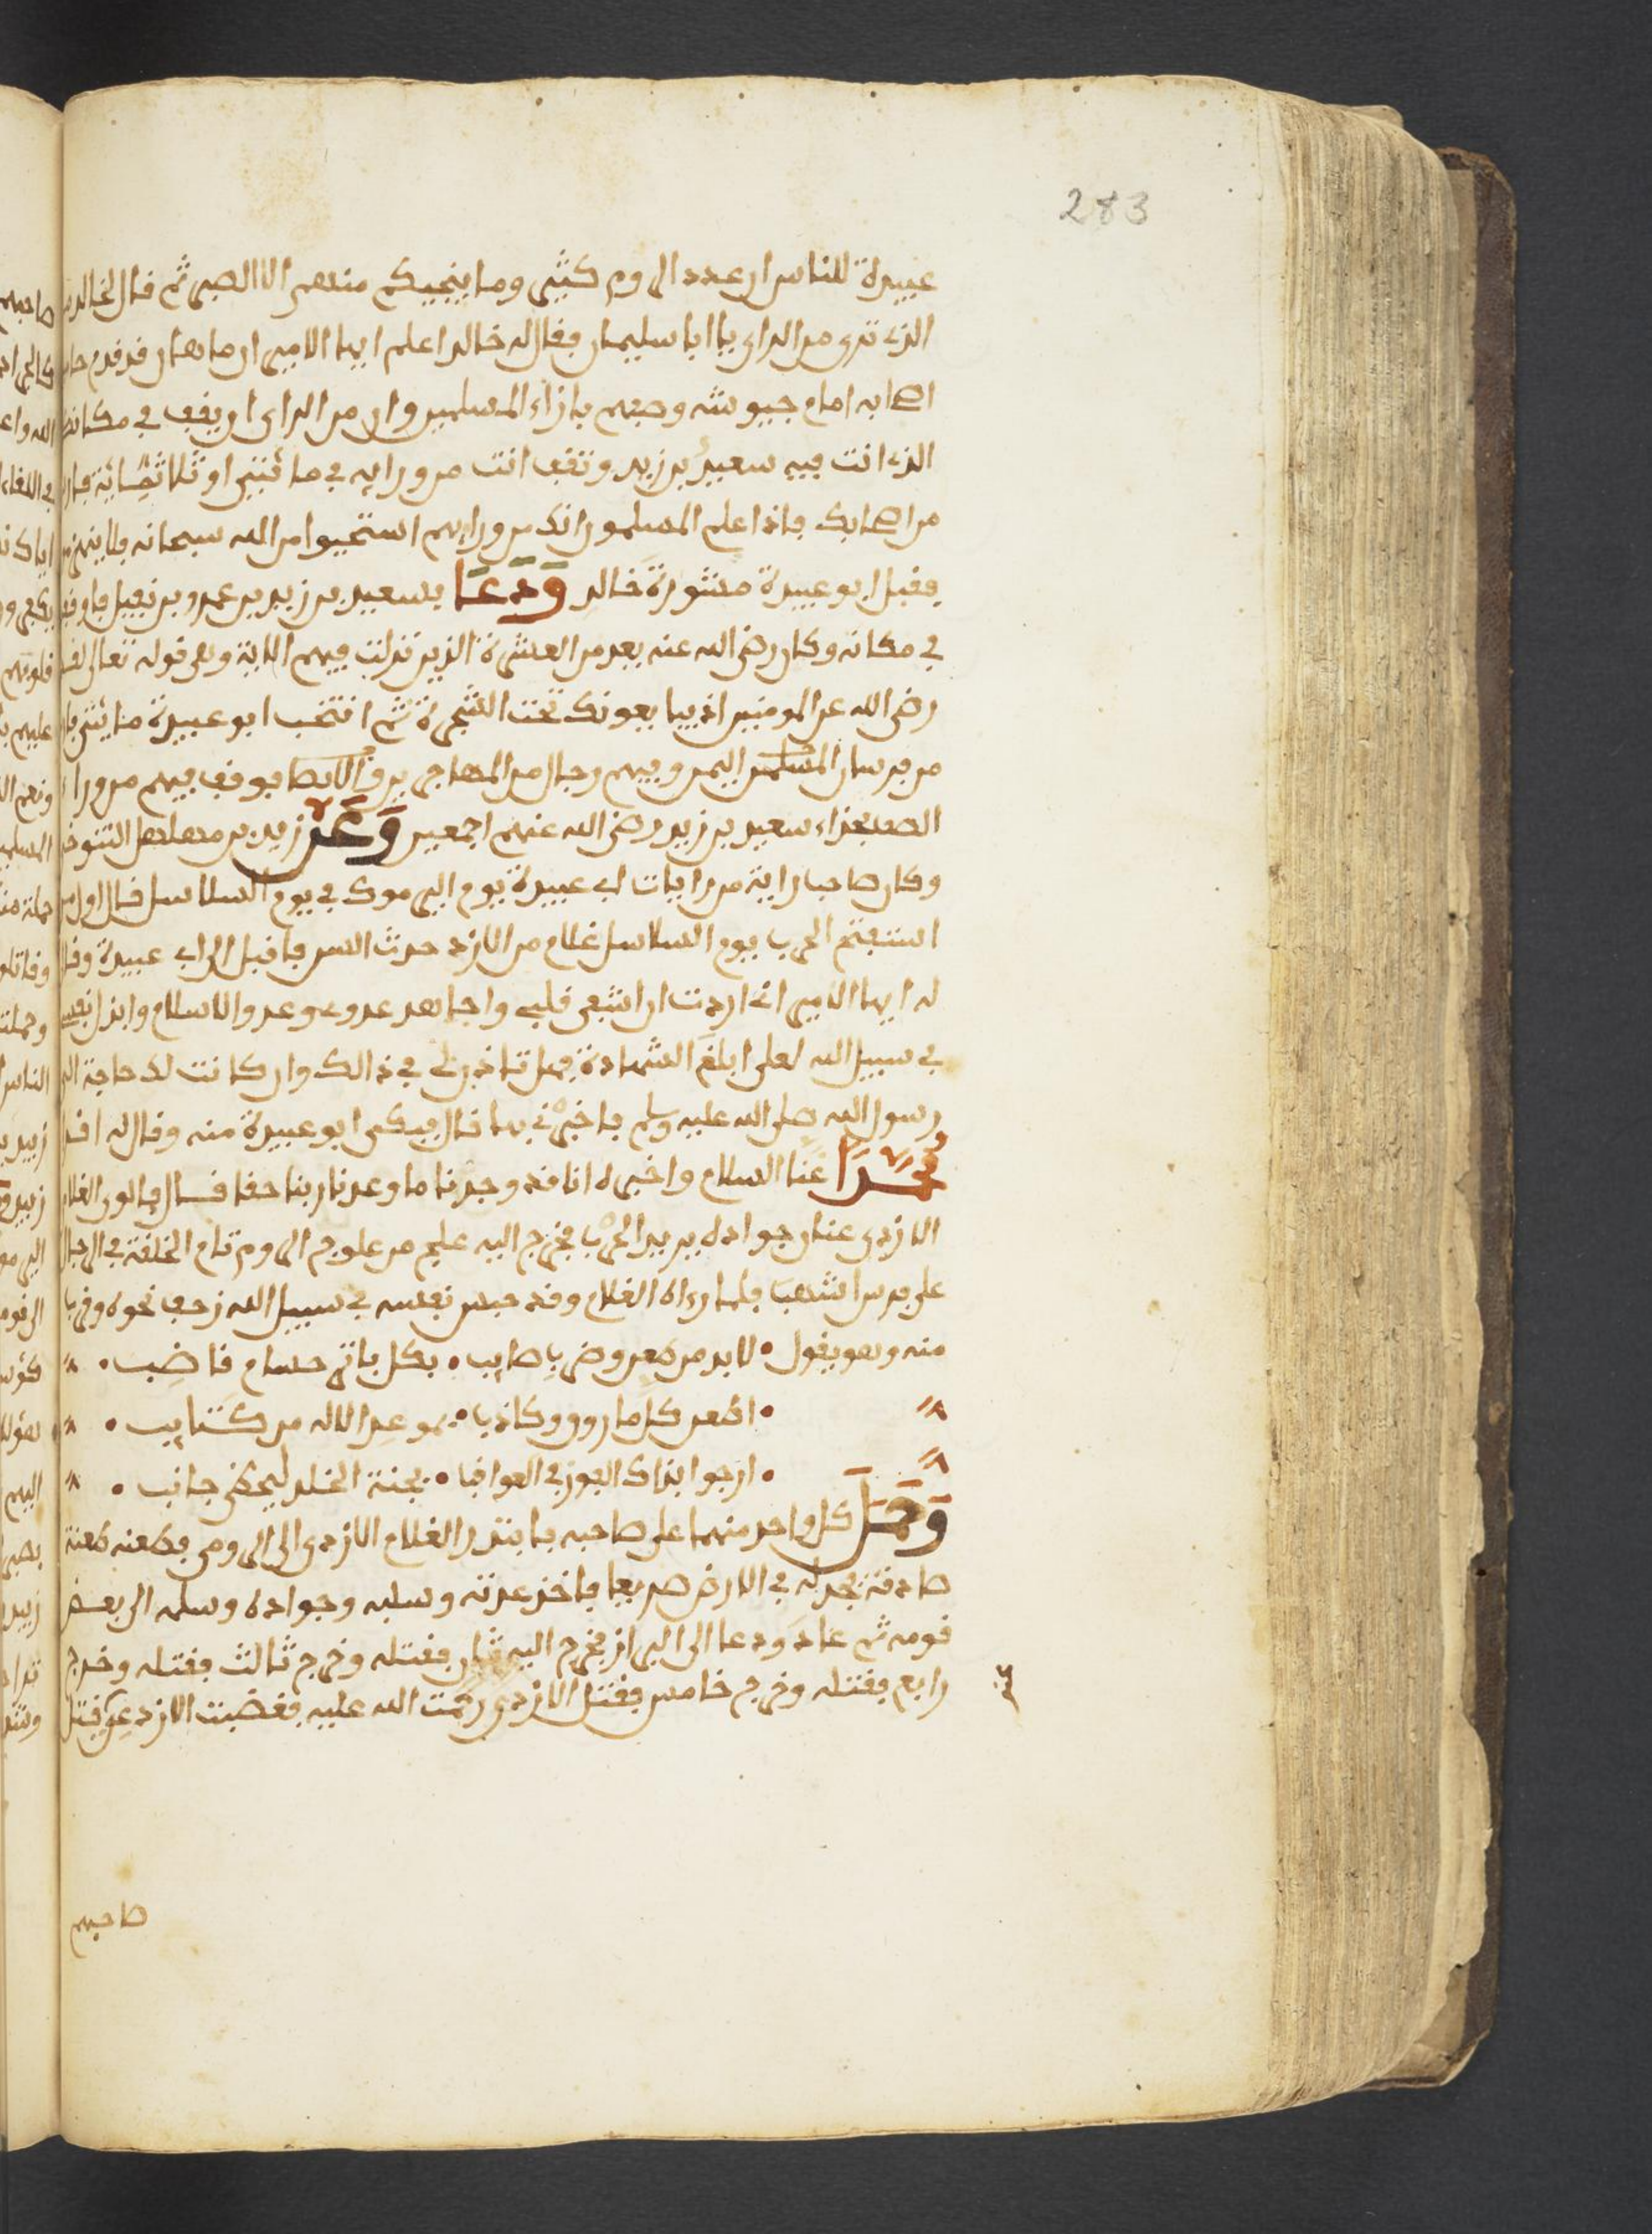 283
عبيدة للناس ان عدد الروم كثير وما ينجيكم منهم الا الصبر ثم قال لخالد
الذي ترى من الراي يا ابا سليمان فقال له خالد اعلم ايها الامير ان ماهان قد قدم
اصحابه امام جيوشه وصفهم بازاء المسلمين وان من الراي ان يقف في مكانك
الذي انت فيه سعيد بن زيد وتقف انت من ورايه في مائتين او ثلاثمائة فارس
من اصحابك فاذا علم المسلمون انك من ورايهم استحيوا من الله سبحانه فلا ينهزموا
فقبل ابو عبيدة مشورة خالد ودعا بسعيد بن زيد بن عمرو بن نفيل فاوقفه
في مكانه وكان رضي الله عنه يعد من العشرة الذين نزلت فيهم الاية وهي قوله تعالى لقد
رضي الله عن المومنين اذ يبايعونك تحت الشجرة ثم انتخب ابو عبيدة مايتي فارس
من فرسان اليمن وفيهم رجال من المهاجرين والانصار فوقف فيهم من وراء
الصف بحذاء سعيد بن زيد رضي الله عنهم اجمعين وعن زيد بن مهلهل التنوخي
وكان صاحب راية من رايات ابي عبيدة يوم اليرموك في يوم السلاسل قال اول من
استفتح الحرب يوم السلاسل غلام من الازد حدث السن فاقبل الى ابي عبيدة وقال
له ايها الامير اني اردت ان اشفي قلبي واجاهد عدوي وعدو الاسلام وابذل نفسي
في سبيل الله لعلي ابلغ الشهادة فهل تاذن لي في ذالك وان كانت لك حاجة الى
رسول الله صلى الله عليه وسلم فاخبرني بها قال فبكى ابو عبيدة منه وقال له اقر
محمدا عنا السلام واخبره انا قد وجدنا ما وعدنا ربنا حقا قال فالوى الغلام
الازدي عنان جواده يريد الحرب فخرج اليه علج من علوج الروم تام الخلقة في الرجال
على فرس اشهب فلما رءاه الغلام وقد حبس نفسه في سبيل الله زحف نحوه وقرب
منه وهو يقول • لا بد من طعن وضرب صايب • بكل باتر حسام قاضب •
• اطعن كل مارق وكاذب • موعد الاله من كتايب •
• ارجو ابذاك الفوز في العواقب • بجنة الخلد ليحظى جانب •
وحمل كل واحد منهما على صاحبه فابتدر الغلام الازدي الى الرومي فطعنه طعنة
صادقة فجدله في الارض صريعا فاخذ عدته وسلبه وجواده وسلمه الى بعض
قومه ثم عاد ودعا الى البراز فخرج اليه ثان فقتله وخرج ثالث فقتله وخرج
رابع فقتله وخرج خامس فقتل الازدي رحمت الله عليه فغضبت الازد
صاحبهم